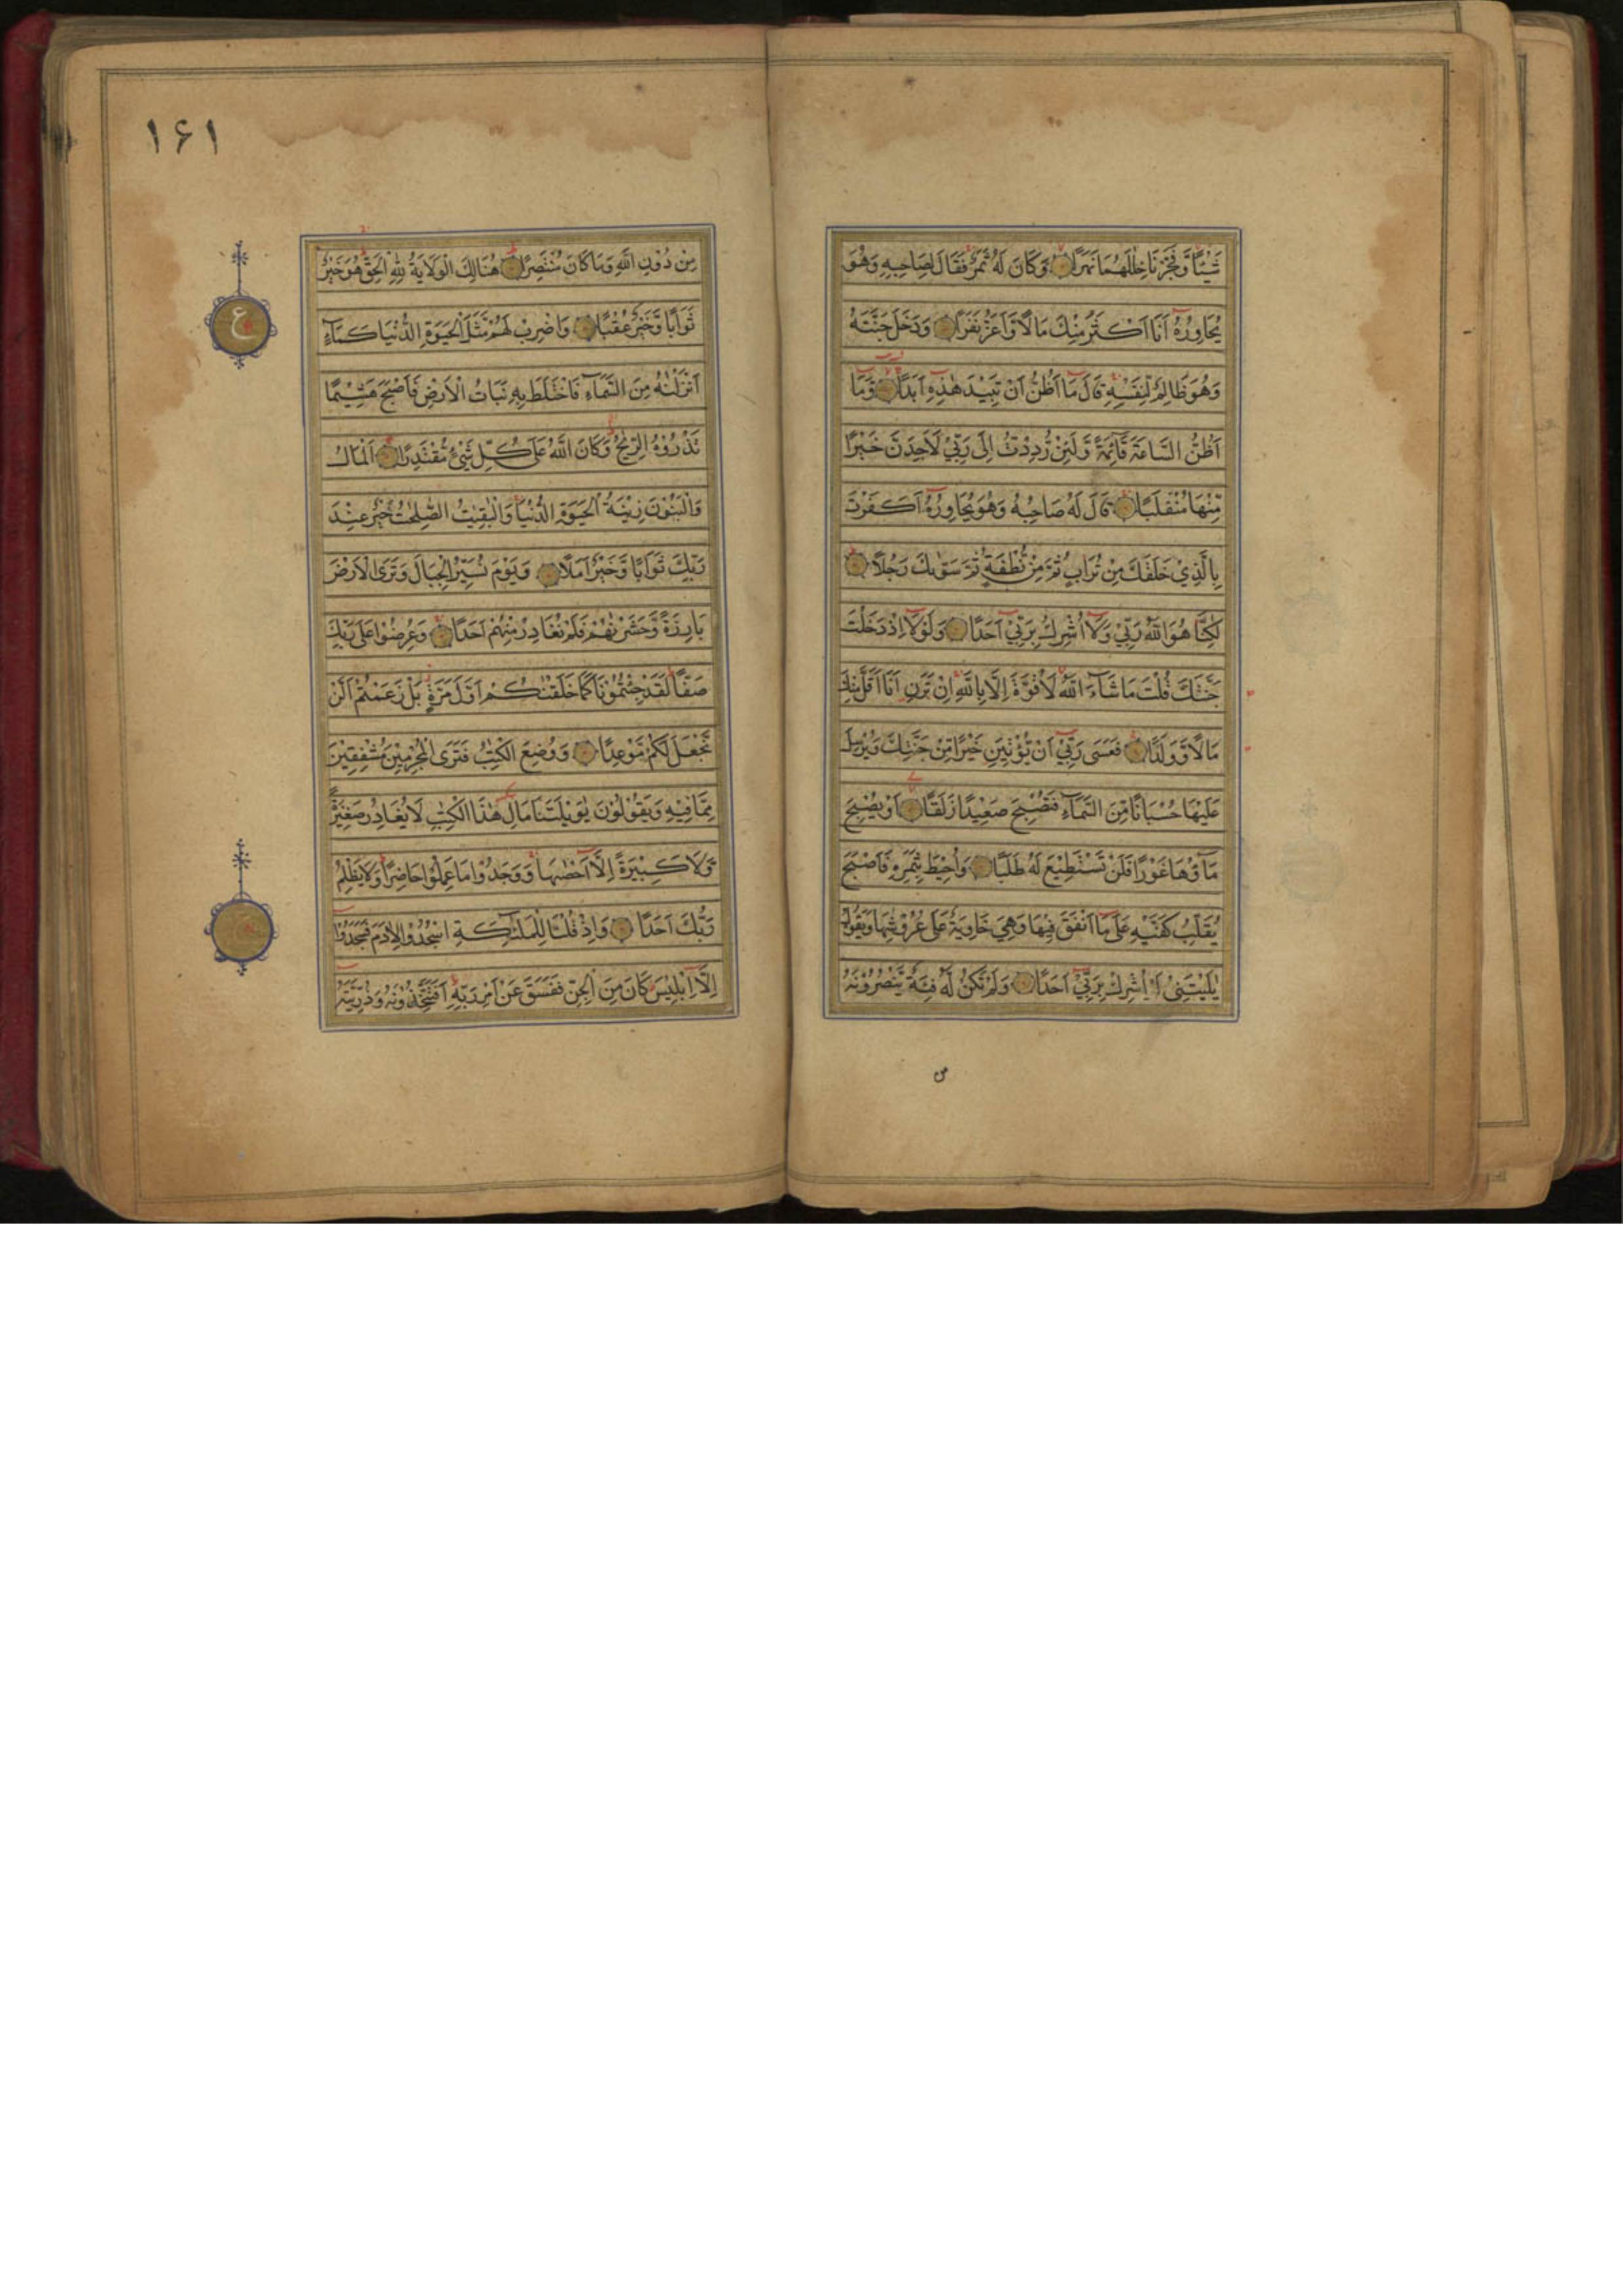 شَيْئًا وَّفَجَّرْنَا خِلٰلَهُمَا نَهَرًا وَّكَانَ لَهٗ ثَمَرٌ فَقَالَ لِصَاحِبِهٖ وَهُوَ
يُحَاوِرُهٗٓ اَنَا اَكْثَرُ مِنْكَ مَالًا وَّاَعَزُّ نَفَرًا وَدَخَلَ جَنَّتَهٗ
وَهُوَ ظَالِمٌ لِّنَفْسِهٖ قَالَ مَآ اَظُنُّ اَنْ تَبِيْدَ هٰذِهٖٓ اَبَدًا وَّمَآ
اَظُنُّ السَّاعَةَ قَآئِمَةً وَّلَئِنْ رُّدِدْتُّ اِلٰى رَبِّيْ لَاَجِدَنَّ خَيْرًا
مِّنْهَا مُنْقَلَبًا قَالَ لَهٗ صَاحِبُهٗ وَهُوَ يُحَاوِرُهٗٓ اَكَفَرْتَ
بِالَّذِيْ خَلَقَكَ مِنْ تُرَابٍ ثُمَّ مِنْ نُّطْفَةٍ ثُمَّ سَوّٰىكَ رَجُلًا
لٰكِنَّا هُوَ اللّٰهُ رَبِّيْ وَلَآ اُشْرِكُ بِرَبِّيْٓ اَحَدًا وَلَوْلَآ اِذْ دَخَلْتَ
جَنَّتَكَ قُلْتَ مَا شَآءَ اللّٰهُ لَا قُوَّةَ اِلَّا بِاللّٰهِ اِنْ تَرَنِ اَنَا اَقَلَّ مِنْكَ
مَالًا وَّوَلَدًا فَعَسٰى رَبِّيْٓ اَنْ يُّؤْتِيَنِ خَيْرًا مِّنْ جَنَّتِكَ وَيُرْسِلَ
عَلَيْهَا حُسْبَانًا مِّنَ السَّمَآءِ فَتُصْبِحَ صَعِيْدًا زَلَقًا اَوْ يُصْبِحَ
مَآؤُهَا غَوْرًا فَلَنْ تَسْتَطِيْعَ لَهٗ طَلَبًا وَاُحِيْطَ بِثَمَرِهٖ فَاَصْبَحَ
يُقَلِّبُ كَفَّيْهِ عَلٰى مَآ اَنْفَقَ فِيْهَا وَهِيَ خَاوِيَةٌ عَلٰى عُرُوْشِهَا وَيَقُوْلُ
يٰلَيْتَنِيْ لَمْ اُشْرِكْ بِرَبِّيْٓ اَحَدًا وَلَمْ تَكُنْ لَّهٗ فِئَةٌ يَّنْصُرُوْنَهٗ
من
١۶١
مِنْ دُوْنِ اللّٰهِ وَمَا كَانَ مُنْتَصِرًا هُنَالِكَ الْوَلَايَةُ لِلّٰهِ الْحَقِّ هُوَ خَيْرٌ
ثَوَابًا وَّخَيْرٌ عُقْبًا وَاضْرِبْ لَهُمْ مَّثَلَ الْحَيٰوةِ الدُّنْيَا كَمَآءٍ
اَنْزَلْنٰهُ مِنَ السَّمَآءِ فَاخْتَلَطَ بِهٖ نَبَاتُ الْاَرْضِ فَاَصْبَحَ هَشِيْمًا
تَذْرُوْهُ الرِّيٰحُ وَكَانَ اللّٰهُ عَلٰى كُلِّ شَيْءٍ مُّقْتَدِرًا اَلْمَالُ
وَالْبَنُوْنَ زِيْنَةُ الْحَيٰوةِ الدُّنْيَا وَالْبٰقِيٰتُ الصّٰلِحٰتُ خَيْرٌ عِنْدَ
رَبِّكَ ثَوَابًا وَّخَيْرٌ اَمَلًا وَيَوْمَ نُسَيِّرُ الْجِبَالَ وَتَرَى الْاَرْضَ
بَارِزَةً وَّحَشَرْنٰهُمْ فَلَمْ نُغَادِرْ مِنْهُمْ اَحَدًا وَعُرِضُوْا عَلٰى رَبِّكَ
صَفًّا لَقَدْ جِئْتُمُوْنَا كَمَا خَلَقْنٰكُمْ اَوَّلَ مَرَّةٍ بَلْ زَعَمْتُمْ اَلَّنْ
نَّجْعَلَ لَكُمْ مَّوْعِدًا وَوُضِعَ الْكِتٰبُ فَتَرَى الْمُجْرِمِيْنَ مُشْفِقِيْنَ
مِمَّا فِيْهِ وَيَقُوْلُوْنَ يٰوَيْلَتَنَا مَالِ هٰذَا الْكِتٰبِ لَا يُغَادِرُ صَغِيْرَةً
وَّلَا كَبِيْرَةً اِلَّآ اَحْصٰىهَا وَوَجَدُوْا مَا عَمِلُوْا حَاضِرًا وَلَا يَظْلِمُ
رَبُّكَ اَحَدًا وَاِذْ قُلْنَا لِلْمَلٰٓئِكَةِ اسْجُدُوْا لِاٰدَمَ فَسَجَدُوْٓا
اِلَّآ اِبْلِيْسَ كَانَ مِنَ الْجِنِّ فَفَسَقَ عَنْ اَمْرِ رَبِّهٖ اَفَتَتَّخِذُوْنَهٗ وَذُرِّيَّتَهٗٓ
ع